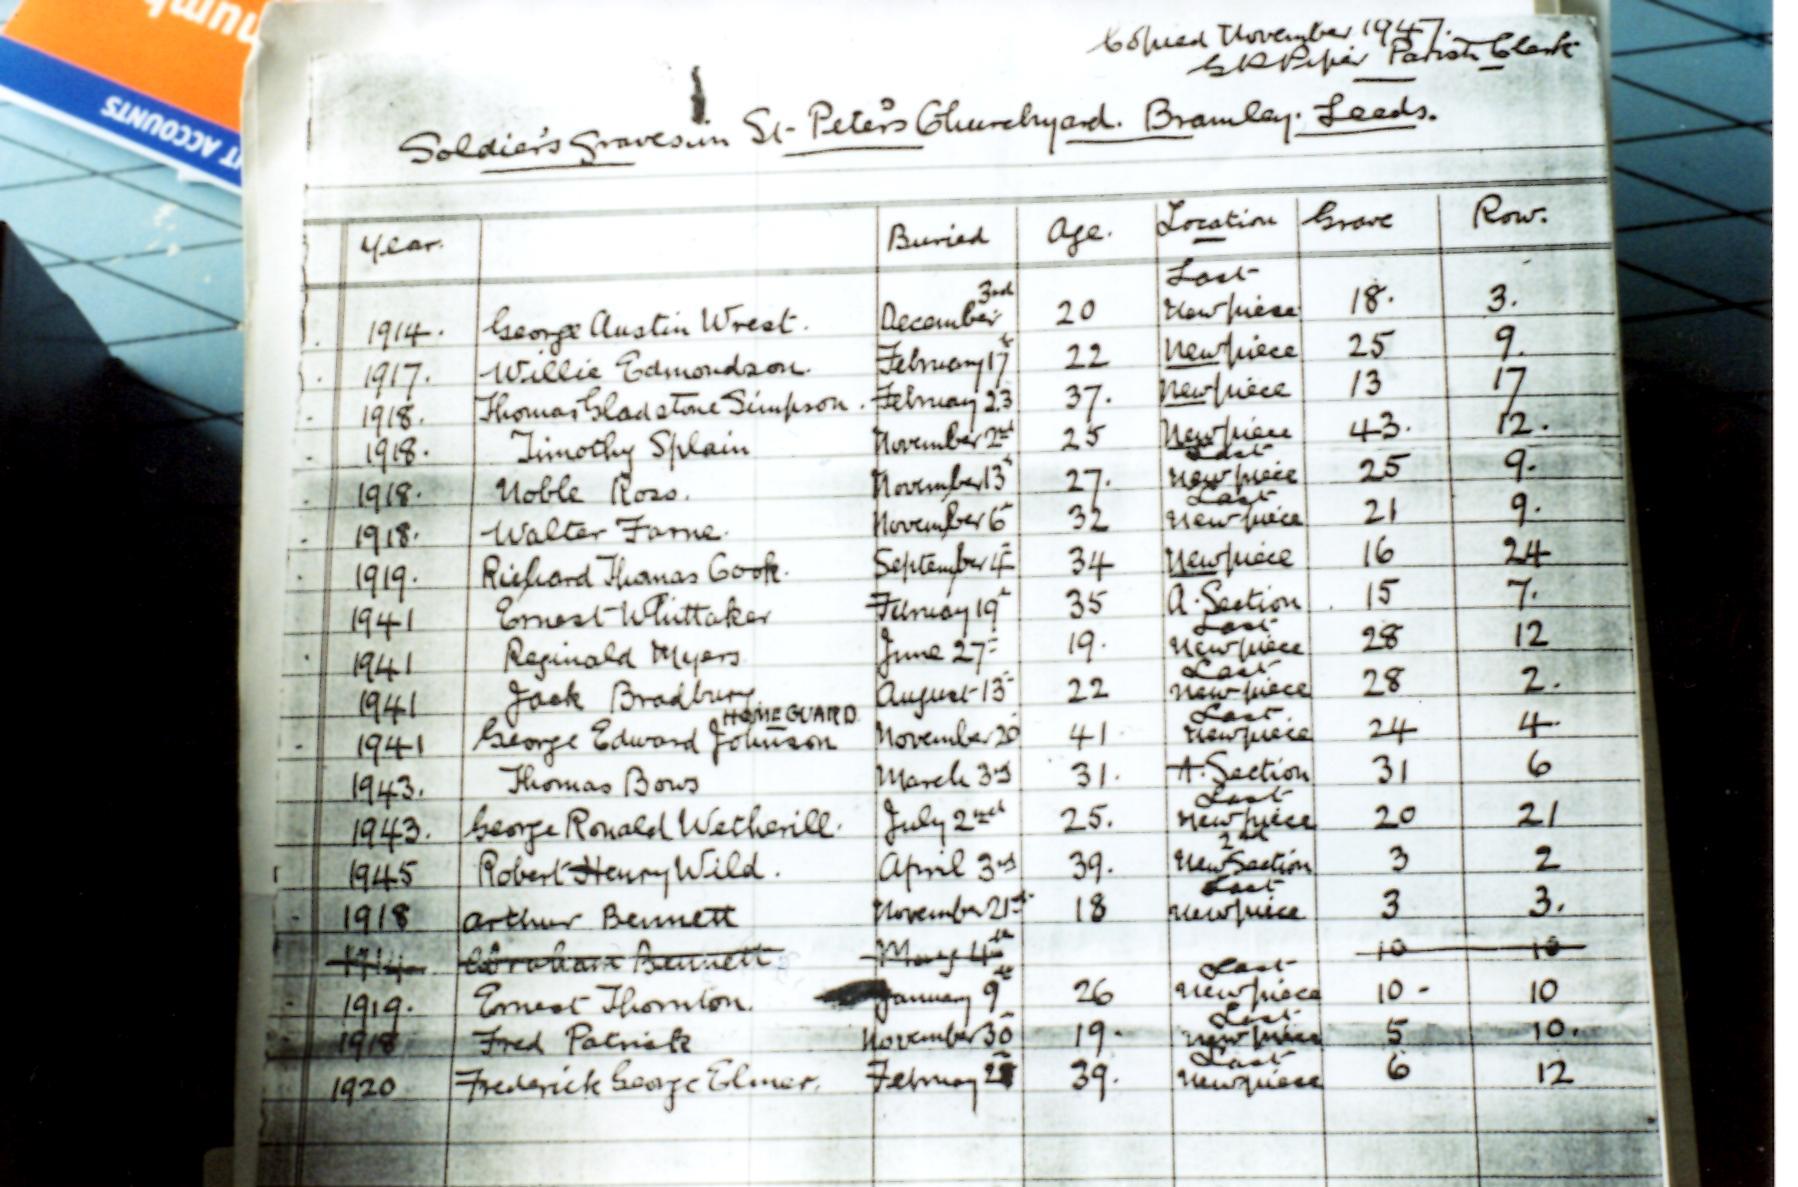 T ACCOUNTS
Copied November 1947.
G R Piper Parish Clerk
Soldier's Graves in St Peter's Churchyard. Bramley. Leeds.
Year. Buried Age. Location Grave Row.
1914. George Austin Wrest. December 3rd 20 Last New piece 18. 3.
1917. Willie Edmondson. February 17th 22 New piece 25 9.
1918. Thomas Gladstone Simpson. February 23 37. New piece 13 17
1918. Timothy Splain November 2nd 25 New piece 43. 12.
1918. Noble Ross. November 13th 27. Last New piece 25 9.
1918. Walter Farne. November 6th 32 Last New piece 21 9.
1919. Richard Thomas Cook. September 4th 34 New piece 16 24
1941 Ernest Whittaker February 19th 35 A. Section 15 7.
1941 Reginald Myers June 27th 19. Last New piece 28 12
1941 Jack Bradbury August 15th 22 Last New piece 28 2.
HOME GUARD
1941 George Edward Johnson November 20 41. Last New piece 24 4.
1943. Thomas Bows March 3rd 31. A. Section 31 6
1943. George Ronald Wetherill. July 2nd 25. Last New piece 20 21
1945 Robert Henry Wild. April 3rd 39. 2nd New Section 3 2
1918 Arthur Bennett November 21st 18 Last New piece 3 3.
Abraham Bennett May 4th 10 10
1919. Ernest Thornton. January 9th 26 Last New piece 10 - 10
1918 Fred Patrick November 30th 19. Last New piece 5 10.
1920 Frederick George Elmer. February 39. Last New piece 6 12